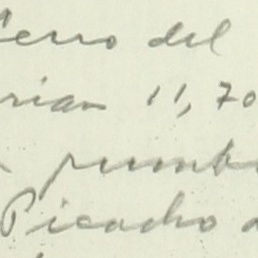 Cerro del
rian 11,70
rumb
Picacho d